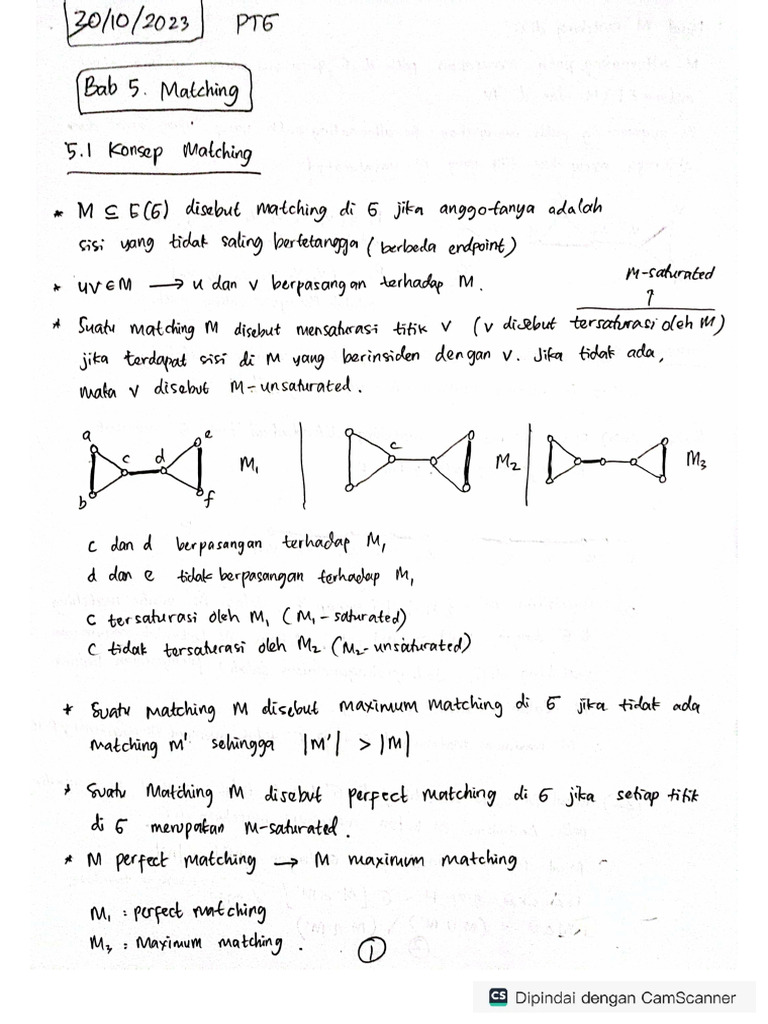 30/10/2023 PTG
Bab 5. Matching
5.1 Konsep Matching
* M ⊆ E(G) disebut matching di G jika anggotanya adalah
sisi yang tidak saling bertetangga (berbeda endpoint)
* uv ∈ M → u dan v berpasangan terhadap M.
M-saturated
↑
* Suatu matching M disebut mensaturasi titik v (v disebut tersaturasi oleh M)
jika terdapat sisi di M yang berinsiden dengan v. Jika tidak ada,
maka v disebut M-unsaturated.
a e c
c d M₁ M₂ M₃
b f
c dan d berpasangan terhadap M₁
d dan e tidak berpasangan terhadap M₁
c tersaturasi oleh M₁ (M₁-saturated)
c tidak tersaturasi oleh M₂ (M₂-unsaturated)
* Suatu matching M disebut maximum matching di G jika tidak ada
matching M' sehingga |M'| > |M|
* Suatu Matching M disebut perfect matching di G jika setiap titik
di G merupakan M-saturated.
* M perfect matching → M maximum matching
M₁ : perfect matching
M₃ : Maximum matching.
1
CS Dipindai dengan CamScanner